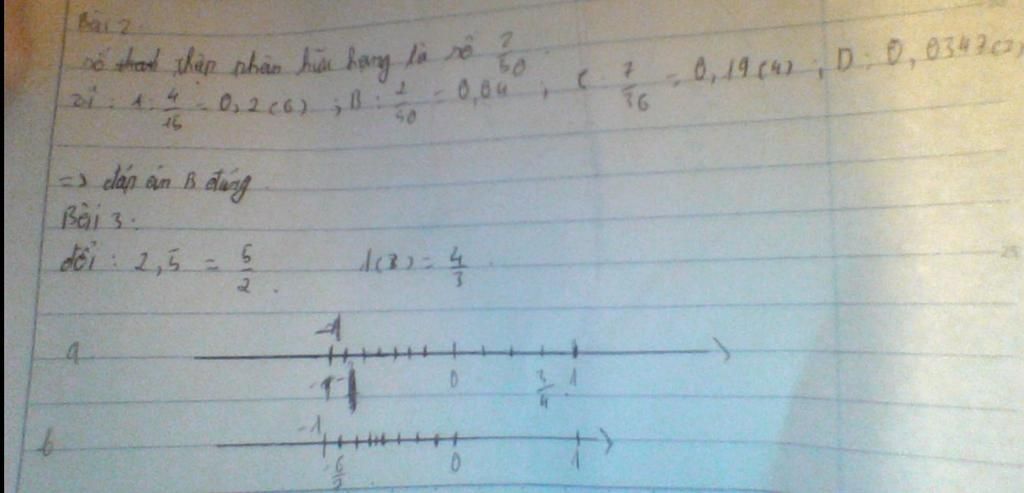 Bài 2
số thập phân hữu hạng là số 2/50
vì : A: 4/15 = 0,2(6) ; B: 2/50 = 0,04 ; C: 7/36 = 0,19(4) ; D: 0,0347(2)
=> đáp án B đúng
Bài 3:
đổi : 2,5 = 5/2 . 1(3) = 4/3 .
-1
a
0 3/4 1
-1
b
0 1